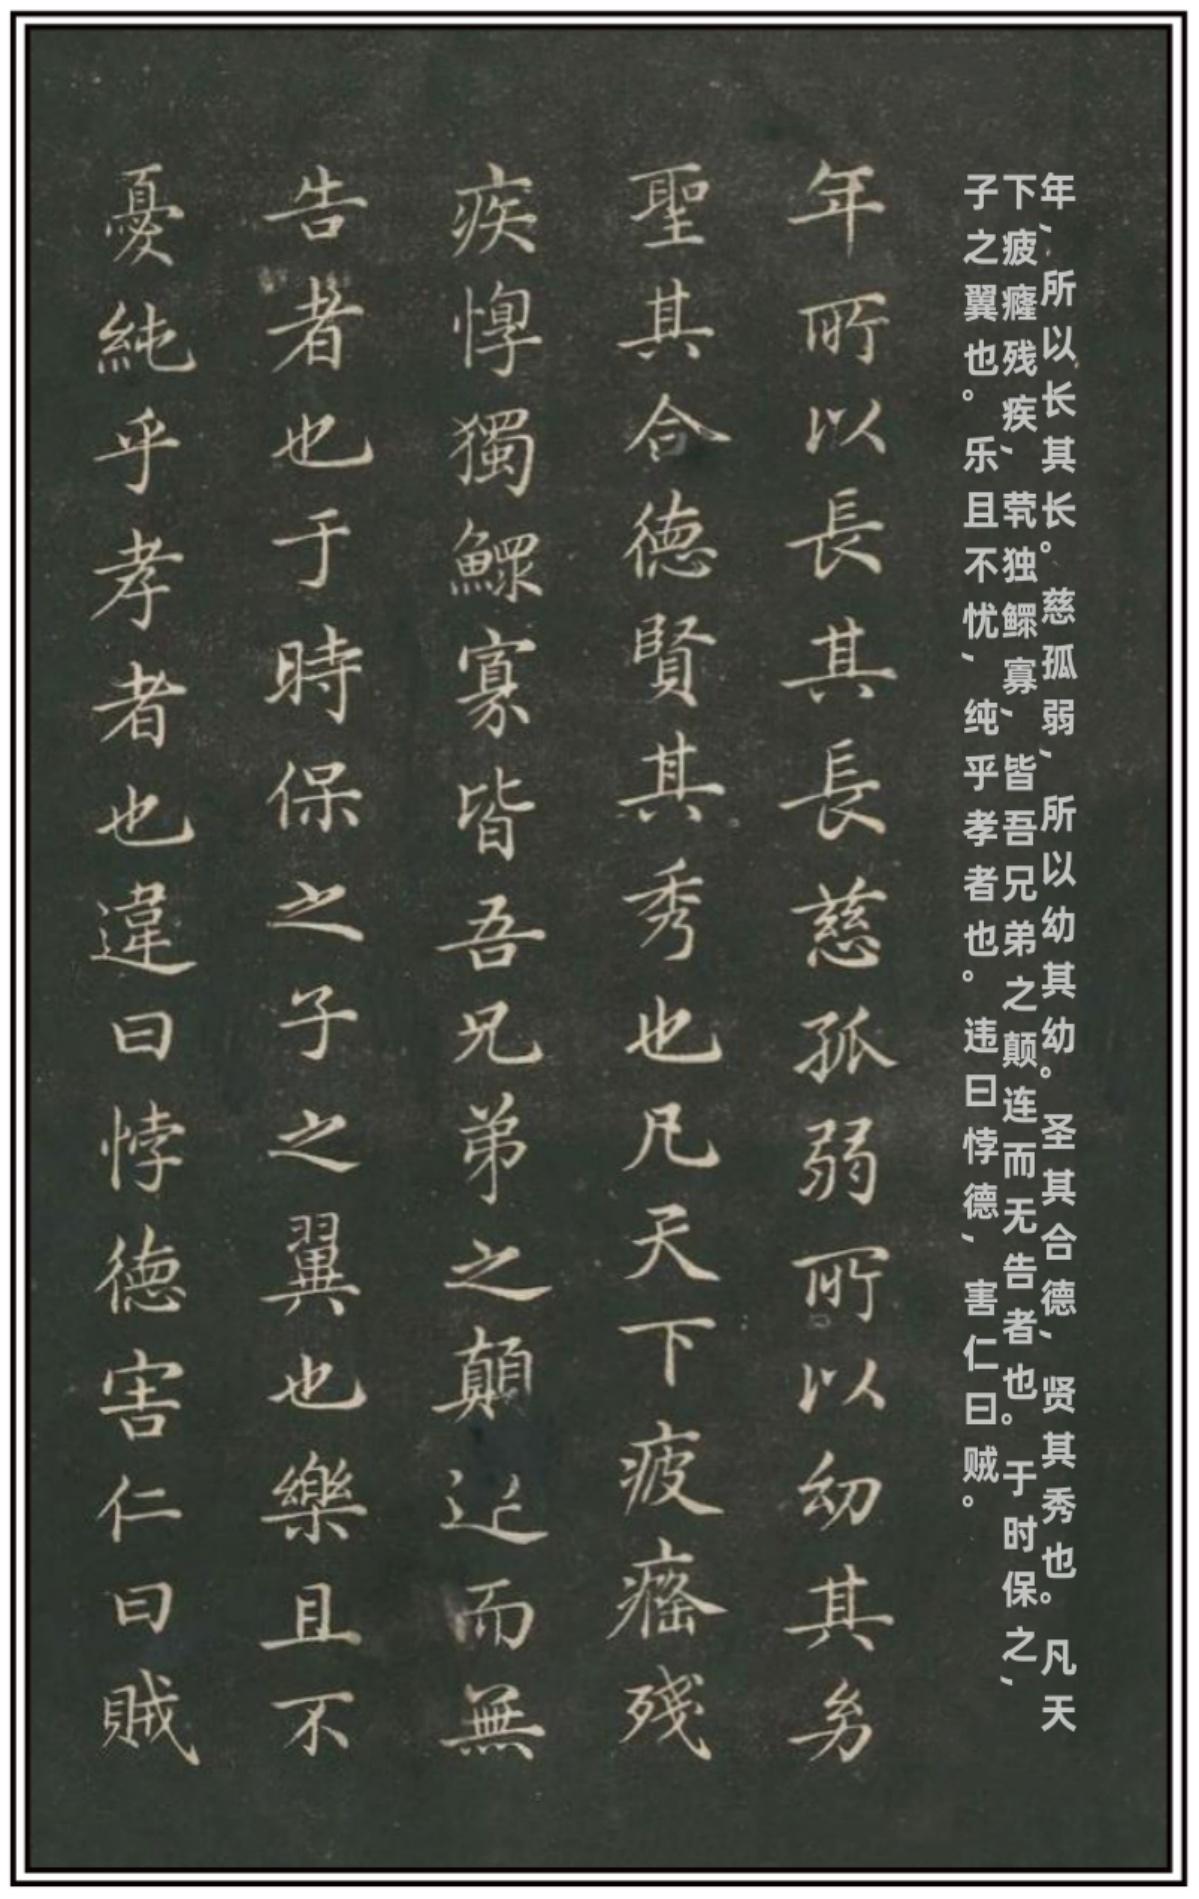 年，所以长其长。慈孤弱，所以幼其幼。圣其合德，贤其秀也。凡天
下疲癃残疾，茕独鳏寡，皆吾兄弟之颠连而无告者也。于时保之，
子之翼也。乐且不忧，纯乎孝者也。违曰悖德，害仁曰贼。
年所以長其長慈孤弱所以幼其㓜
聖其合德賢其秀也凡天下疲癃殘
疾惸獨鰥寡皆吾兄弟之顛连而無
告者也于時保之子之翼也樂且不
憂純乎孝者也違曰悖德害仁曰賊